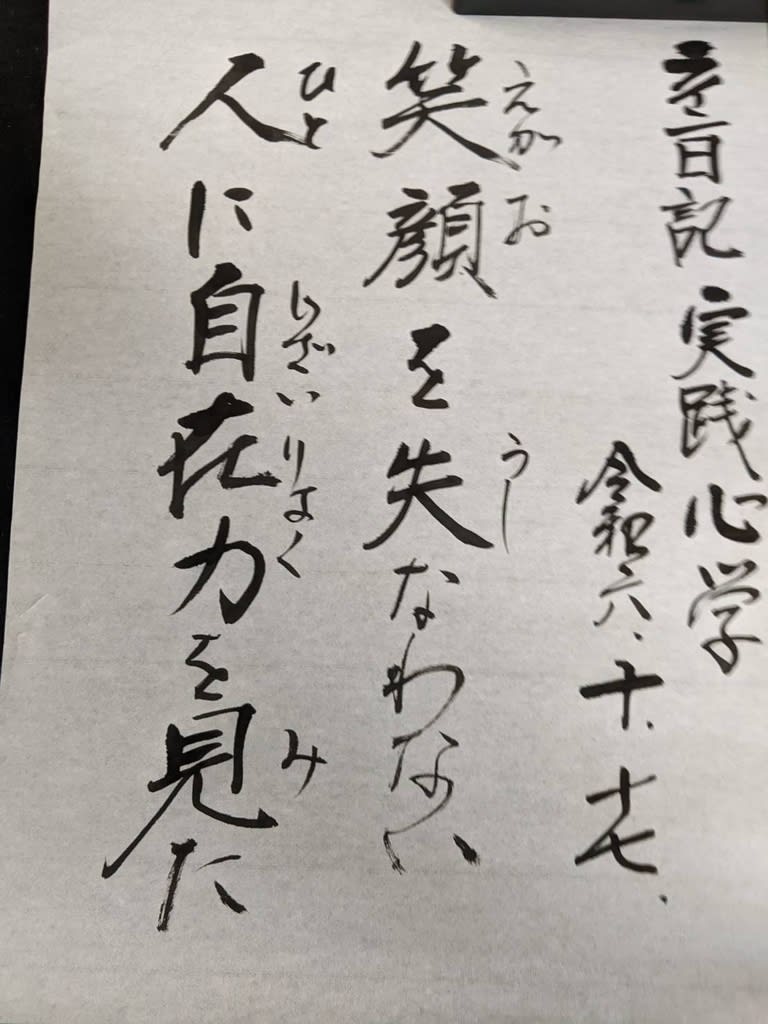 日記 実践心学
令和六、十、十七、
えがお うし
笑顔を失なわない
ひと じざいりょく み
人に自在力を見た